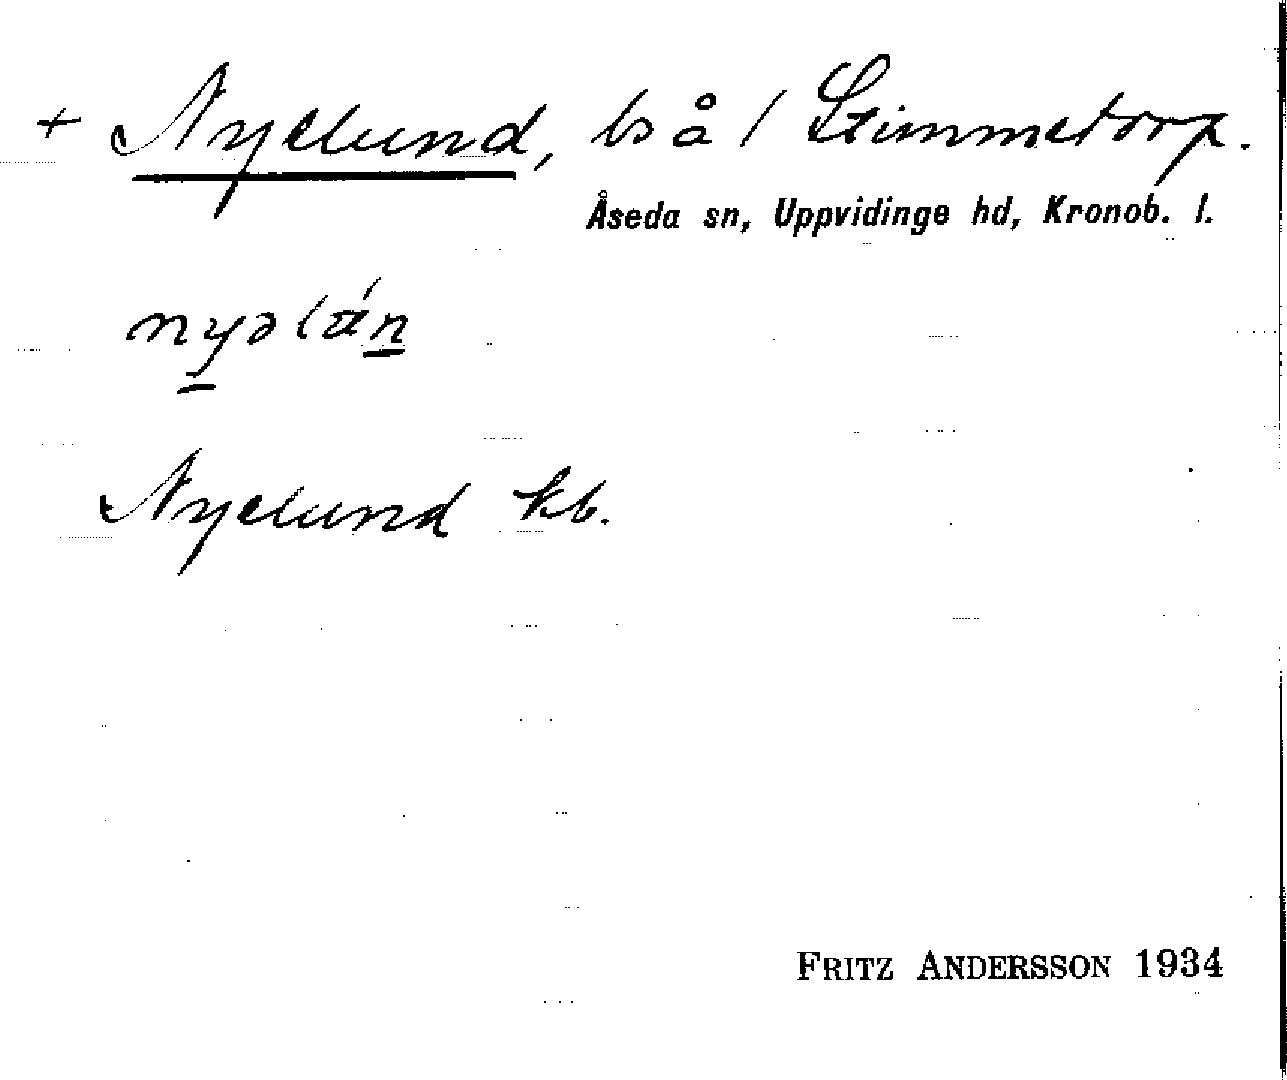 + Nyelund, bs å / Stimmetorp.
Åseda sn, Uppvidinge hd, Kronob. l.
Nyelund kb.
FRITZ ANDERSSON 1934